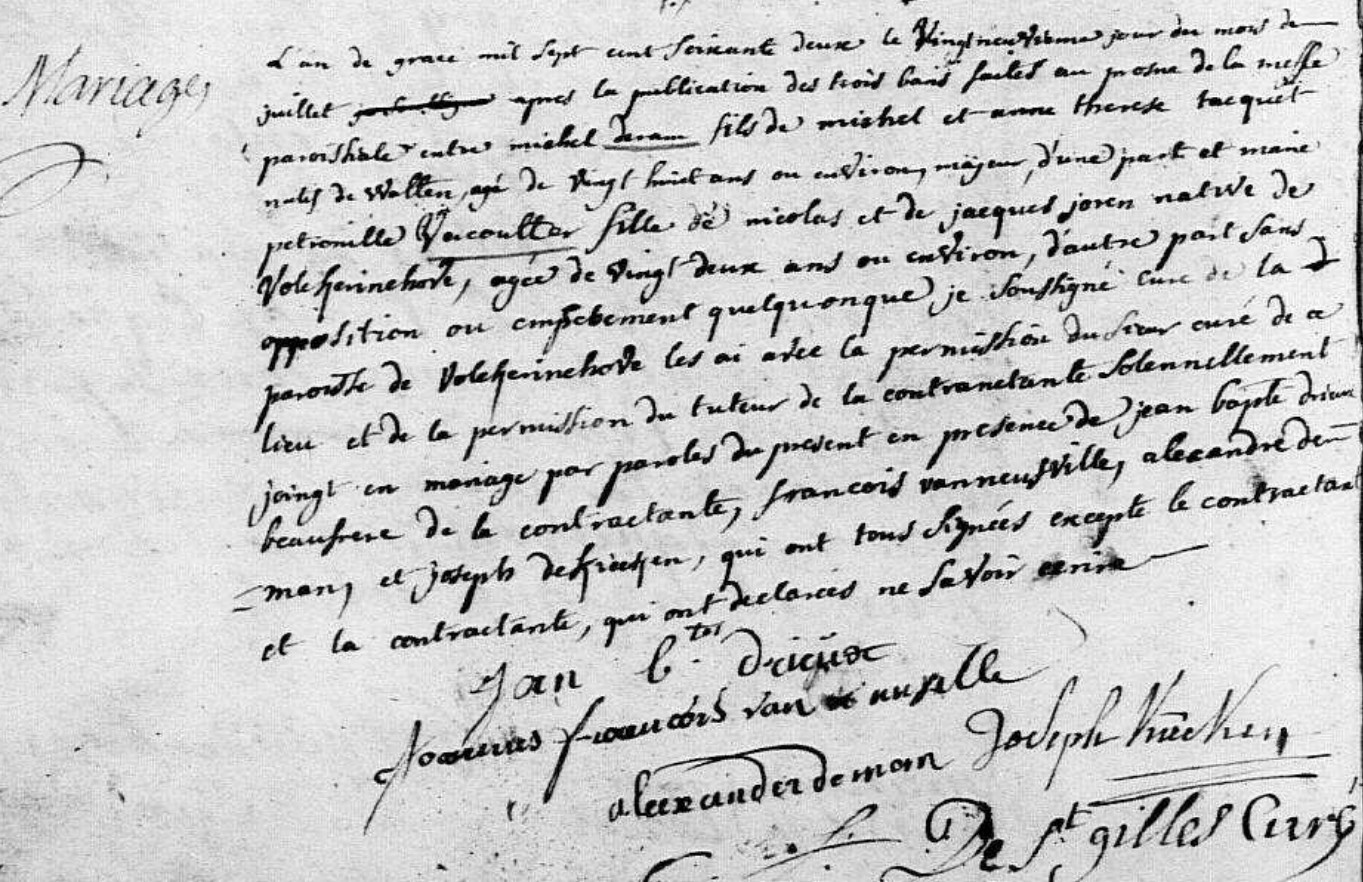 Mariage
L'an de grace mil sept cent soixante deux le vingt neuvieme jour du mois de
juillet apres la publication des trois bans faites au prosne de la messe
paroissiale entre michel deram fils de michel et anne therese tacquet
natif de Watten, agé de vingt huict ans ou environ, majeur, d'une part et marie
petronille Vercoutter fille de nicolas et de jacques joren native de
Volckerinchove, agée de vingt deux ans ou environ, d'autre part sans
opposition ou empechement quelquonque je soussigné curé de la d
paroisse de Volckerinchove les ai avec la permission du sieur curé de ce
lieu et de la permission du tuteur de la contranctante solennellement
joingt en mariage par paroles du present en presence de jean bapte drieux
beaufrere de la contractante, francois vanneusville, alexandre de
-man, et joseph de Kiecken, qui ont tous signées excepté le contractant
et la contractante, qui ont declarées ne savoir ecrire
Jan b. tes drieux
Joannes francois van neuville
alexander deman Joseph Kiecken
De St gilles Curé